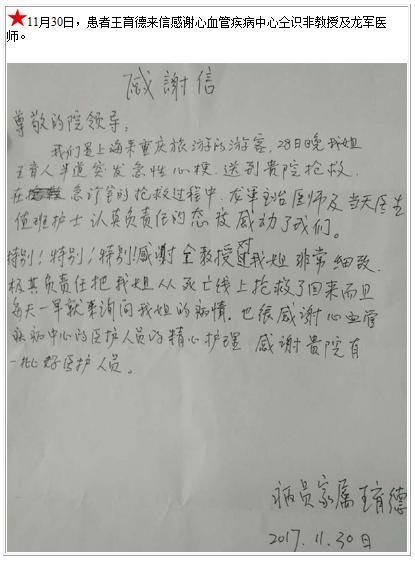 ★11月30日，患者王育德来信感谢心血管疾病中心仝识非教授及龙军医
师。
感謝信
尊敬的院领导：
我们是上海来重庆旅游的游客，28日晚我姐
王育人半道突发急性心梗，送到贵院抢救，
在急诊室的抢救过程中，龙军主治医师及当天医生
值班护士认真负责任的态度感动了我们。
特别！特别！特别！感谢仝教授对我姐非常细致，
极其负责任把我姐从死亡线上抢救了回来而且
每天一早就来询问我姐的病情。也很感谢心血管
疾病中心的医护人员的精心护理，感谢贵院有
一批好医护人员。
病员家属 王育德
2017.11.30日